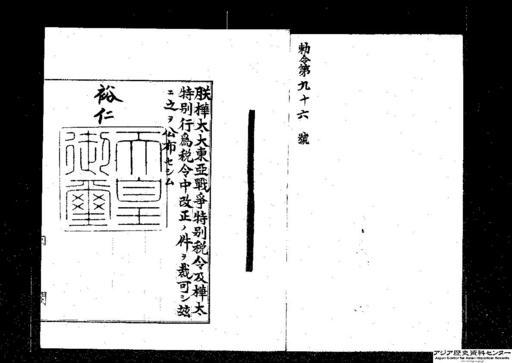 勅令第九十六號
朕樺太大東亞戰爭特別税令及樺太
特別行爲税令中改正ノ件ヲ裁可シ茲
ニ之ヲ公布セシム
裕仁
天皇
御璽
内閣
アジア歴史資料センター
Japan Center for Asian Historical Records